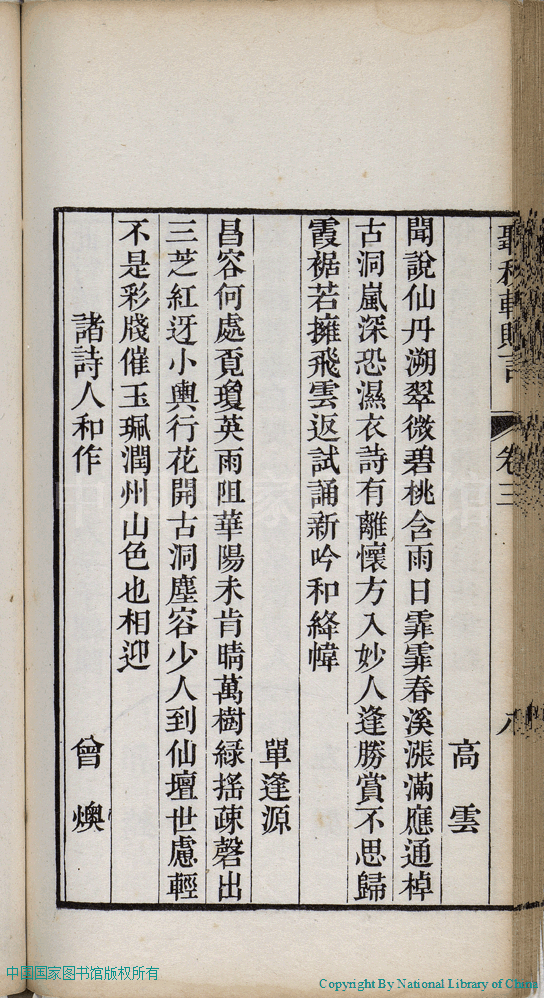 聽秋軒贈言 卷三 八
高雲
聞說仙丹溯翠微碧桃含雨日霏霏春溪漲滿應通棹
古洞嵐深恐濕衣詩有離懷方入妙人逢勝賞不思歸
霞裾若擁飛雲返試誦新吟和絳幃
單逢源
昌容何處覓瓊英雨阻華陽未肯晴萬樹綠搖疎磬出
三芝紅迓小輿行花開古洞塵容少人到仙壇世慮輕
不是彩牋催玉珮潤州山色也相迎
諸詩人和作 曾燠
中国国家图书馆版权所有
Copyright By National Library of China